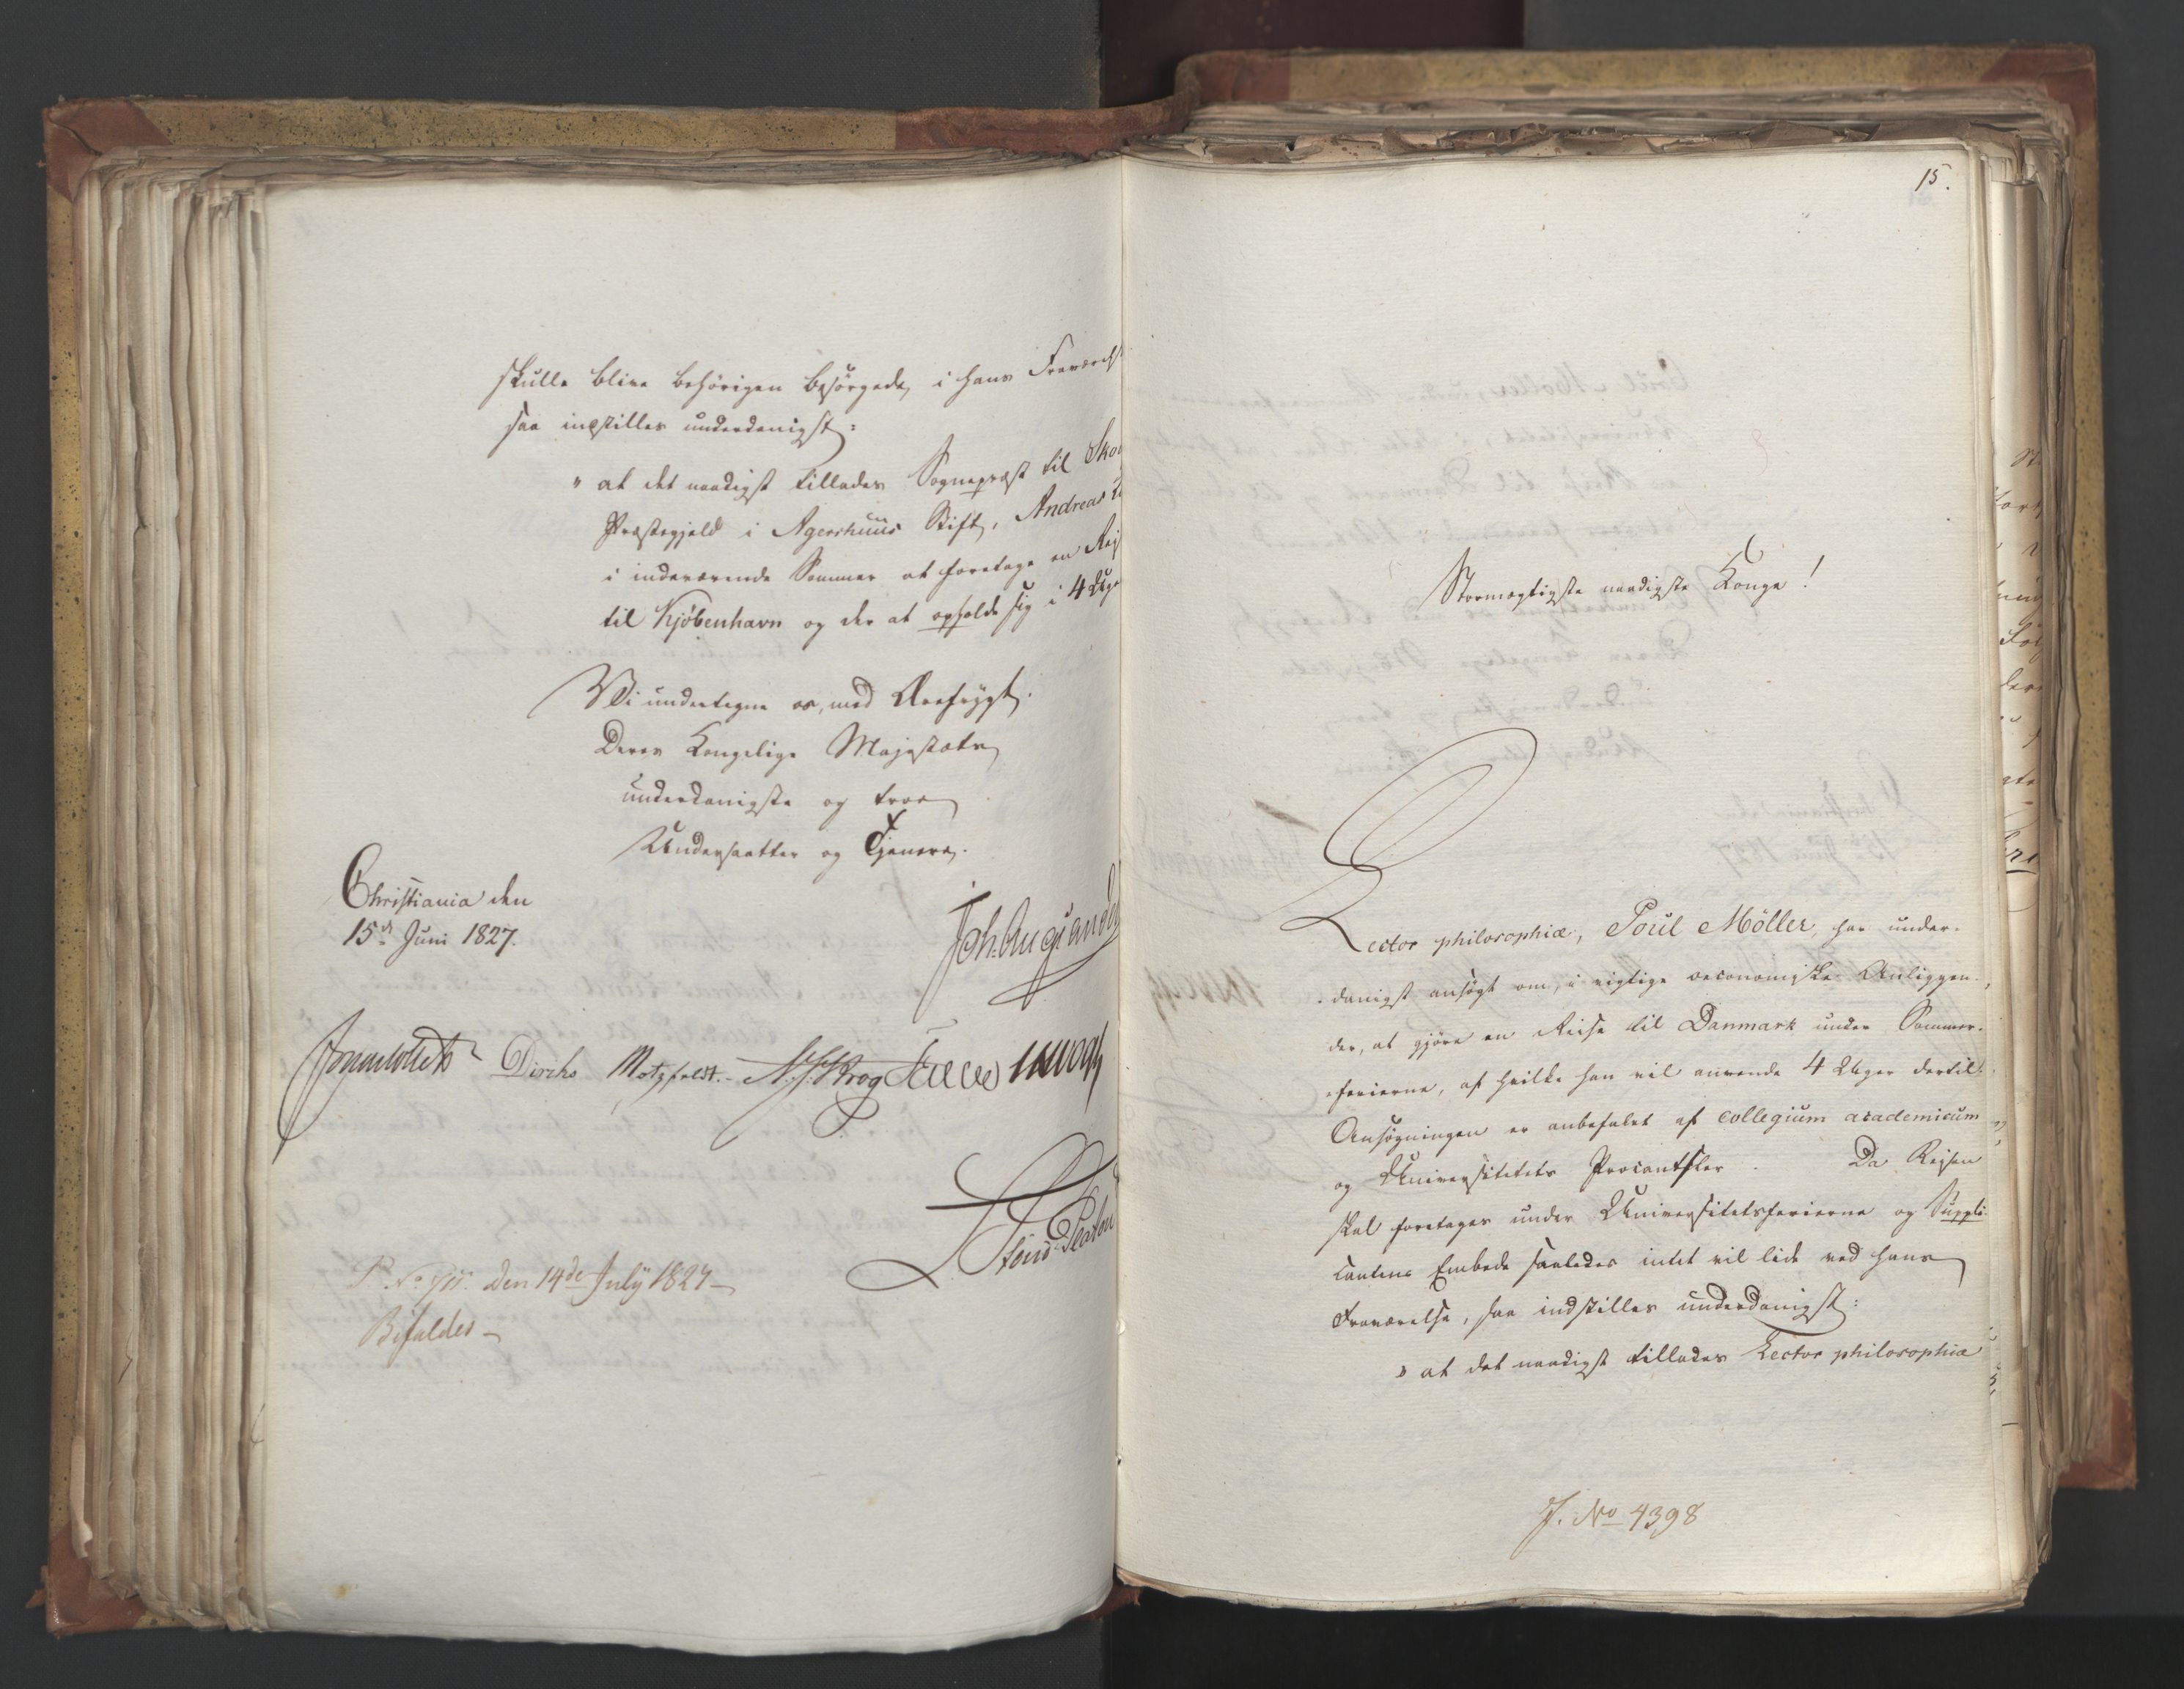 skulle blive behörigen besörgede, i hans Fraværelse
saa indstilles underdanigst:
" at det naadigst tillades Sognepræst til
Præstegjeld i Agershuus Stift, Andreas
i indeværende Sommer at foretage en Rej
til Kjöbenhavn og der at opholde sig i 4 Uge
Vi undertegne os, med Ærefrygt,
Deres Kongelige Majestæts
underdanigste og troe
Undersaatter og Tjenere.
Christiania den
15de Juni 1827.
Diriks Motzfeldt. Krog
Platou
den 14de July 1827
Bifaldes
15.
Stormægtigste naadigste Konge!
Lector philosophiæ, Poul Möller, har under-
danigst ansögt om, i vigtige oeconomiske Anliggen-
der, at gjöre en Reise til Danmark under Sommer-
ferierne, af hvilke han vil anvende 4 Uger dertil.
Ansögningen er anbefalet af collegium academicum
og Universitetets Procantsler. Da Rejsen
skal foretages under Universitetsferierne og Suppli-
cantens Embede saaledes intet vil lide ved hans
Fraværelse, saa indstilles underdanigst:
" at det naadigst tillades Lector philosophiæ
J. No 4398